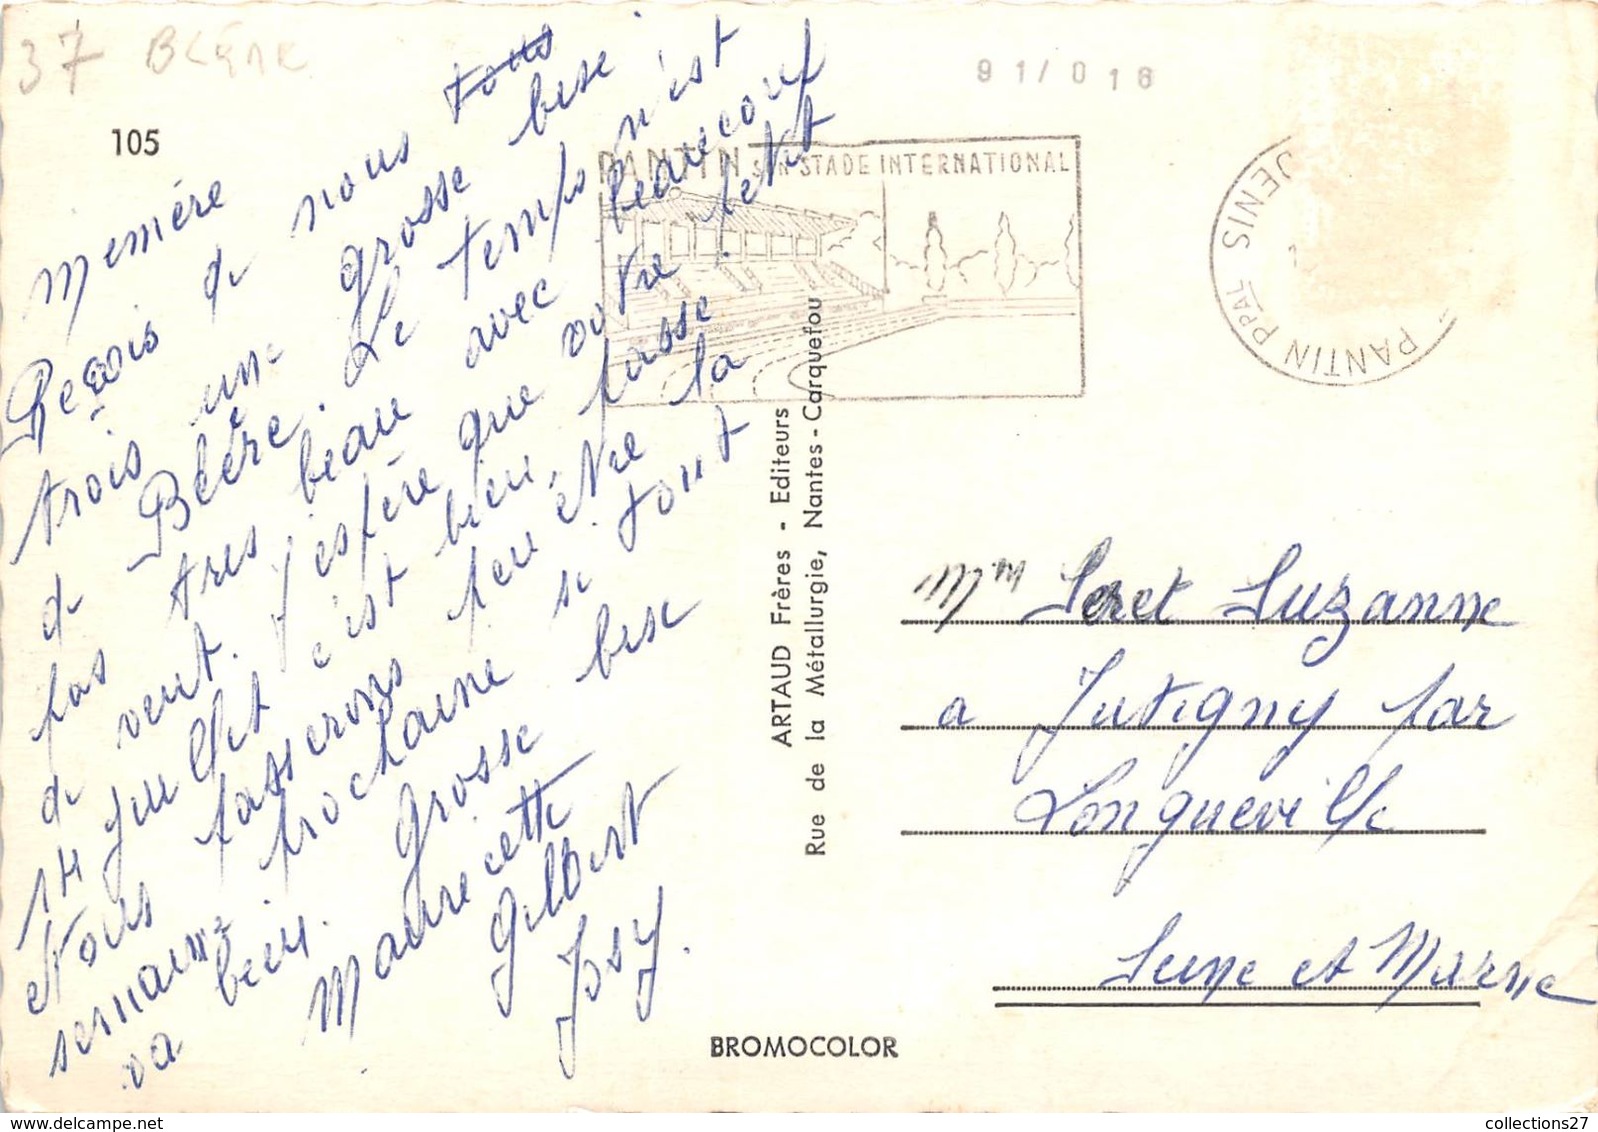 37 BLÉRÉ
91/018
105
PANTIN SON STADE INTERNATIONAL
PANTIN PPAL
DENIS
memére
Reçois de nous tous
trois une grosse bise
de Bléré. Le temps n'est
pas tres beau avec beaucoup
de vent. J'espère que votre petit
14 juillet c'est bien passé
Nous passerons peu etre la
semaine prochaine si tout
va bien. grosse bise
Mauricette
Gilbert
Josy.
ARTAUD Frères - Editeurs
Rue de la Métallurgie, Nantes-Carquefou
Mme Leret Suzanne
a Jutigny par
Longueville
Seine et Marne
BROMOCOLOR
collections27